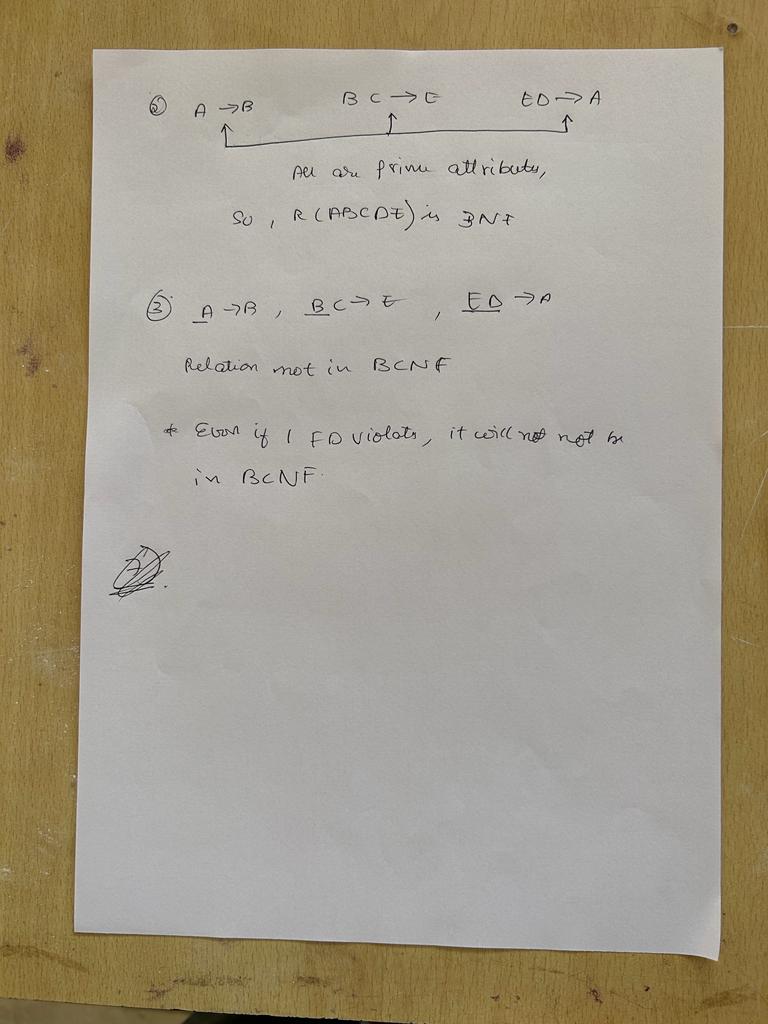 A → B B C → E ED → A
All are prime attributes,
So, R(ABCDE) is 3NF
③ A → B, BC → E, ED → A
Relation not in BCNF
* Even if 1 FD violats, it will not not be
in BCNF.